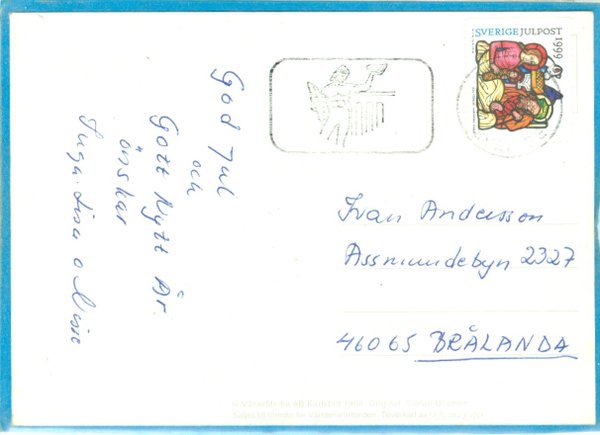 SVERIGE JULPOST
1999
God Jul
och
Gott Nytt År
önskar
Inga-Lisa o Nisse
Ivan Andersson
Assmundebyn 2327
46065 BRÅLANDA